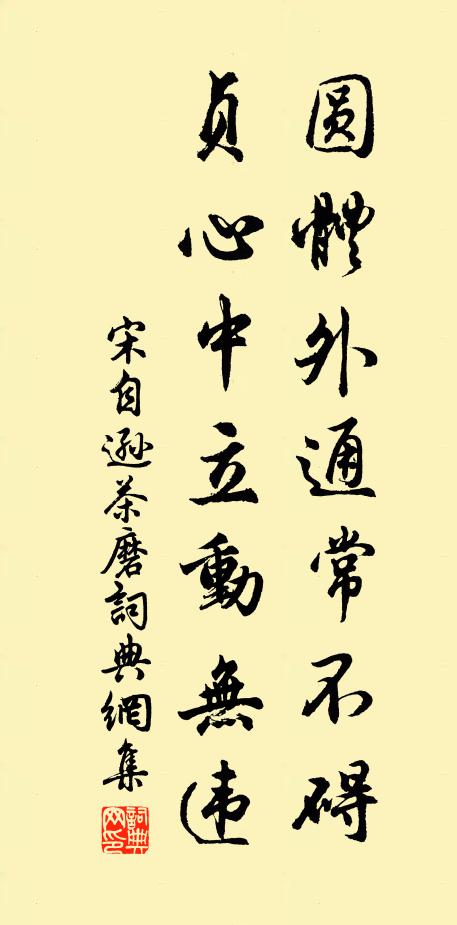 圆體外通常不碍
贞心中立動無违
宋自遜茶磨詞典網集
詞典网印